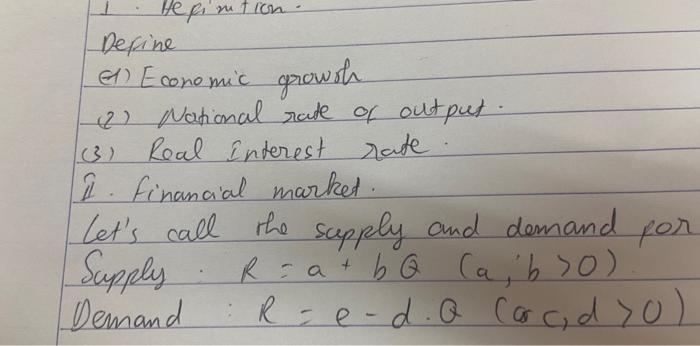 I. Definition.
Define
(1) Economic growth
(2) National rate of output.
(3) Real Interest rate.
II. Financial market.
Let's call the supply and demand for
Supply : R = a + bQ (a, b > 0)
Demand : R = e - d.Q (c, d > 0)